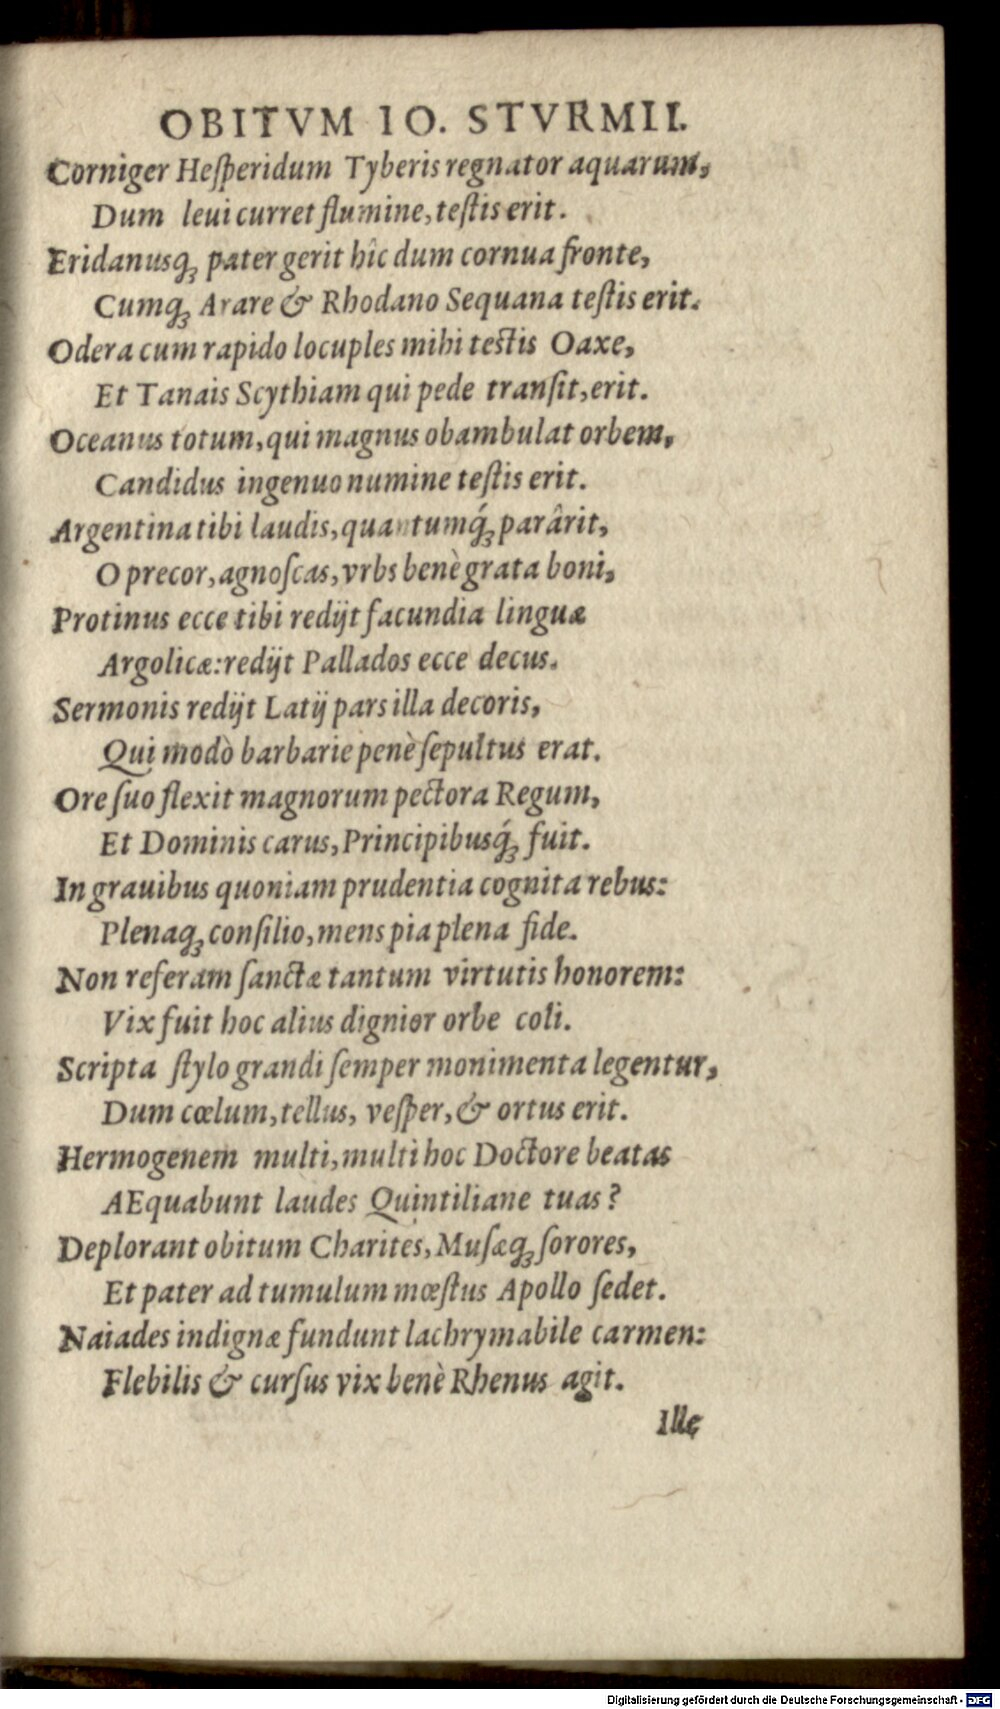 OBITVM IO. STVRMII.
Corniger Heſperidum Tyberis regnator aquarum,
Dum leui curret flumine, teſtis erit.
Eridanusq́ꝫ pater gerit hîc dum cornua fronte,
Cumqꝫ Arare & Rhodano Sequana teſtis erit.
Odera cum rapido locuples mihi testis Oaxe,
Et Tanais Scythiam qui pede tranſit, erit.
Oceanus totum, qui magnus obambulat orbem,
Candidus ingenuo numine teſtis erit.
Argentina tibi laudis, quantumq́ꝫ parârit,
O precor, agnoſcas, vrbs benè grata boni,
Protinus ecce tibi redijt facundia linguæ
Argolicæ: redijt Pallados ecce decus.
Sermonis redijt Latij pars illa decoris,
Qui modò barbarie penè ſepultus erat.
Ore ſuo flexit magnorum pectora Regum,
Et Dominis carus, Principibusq́ꝫ fuit.
In grauibus quoniam prudentia cognita rebus:
Plenaqꝫ conſilio, mens pia plena fide.
Non referam ſanctæ tantum virtutis honorem:
Vix fuit hoc alius dignior orbe coli.
Scripta ſtylo grandi ſemper monimenta legentur,
Dum cœlum, tellus, veſper, & ortus erit.
Hermogenem multi, multi hoc Doctore beatas
AEquabunt laudes Quintiliane tuas?
Deplorant obitum Charites, Muſæqꝫ ſorores,
Et pater ad tumulum mœſtus Apollo ſedet.
Naiades indignæ fundunt lachrymabile carmen:
Flebilis & curſus vix benè Rhenus agit.
Ille
Digitalisierung gefördert durch die Deutsche Forschungsgemeinschaft - DFG